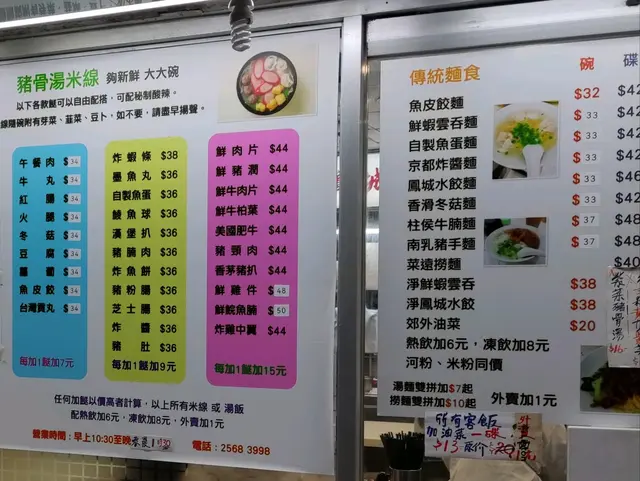 豬骨湯米線 夠新鮮 大大碗
以下各款餸可以自由配搭，可配秘制酸辣。
線隨碗附有芽菜、韮菜、豆卜，如不要，請盡早揚聲。
午餐肉 $34
牛丸 $34
紅腸 $34
火腿 $34
冬菇 $34
豆腐 $34
蘿蔔 $34
魚皮餃 $34
台灣貢丸 $34
每加1餸加7元
炸蝦條 $38
墨魚丸 $36
自製魚蛋 $36
鯪魚球 $36
漢堡扒 $36
豬腩肉 $36
炸魚餅 $36
豬粉腸 $36
芝士腸 $36
炸醬 $36
豬肚 $36
每加1餸加9元
鮮肉片 $44
鮮豬潤 $44
鮮牛肉片 $44
鮮牛柏葉 $44
美國肥牛 $44
豬頸肉 $44
香茅豬扒 $44
鮮雞件 $48
鮮鯇魚腩 $50
炸雞中翼 $44
每加1餸加15元
任何加餸以價高者計算，以上所有米線 或 湯飯
配熱飲加6元，凍飲加8元，外賣加1元
營業時間：早上10:30至晚
電話：2568 3998
傳統麵食 碗 碟
魚皮餃麵 $32 $42
鮮蝦雲吞麵 $33 $42
自製魚蛋麵 $33 $42
京都炸醬麵 $33 $42
鳳城水餃麵 $33 $42
香滑冬菇麵 $33 $42
柱侯牛腩麵 $37 $46
南乳豬手麵 $37 $48
菜遠撈麵 $40
淨鮮蝦雲吞 $38
淨鳳城水餃 $38
郊外油菜 $20
熱飲加6元，凍飲加8元
河粉、米粉同價
湯麵雙拼加$7起
撈麵雙拼加$10起 外賣加1元
所有客飯
加油菜一碟
$13